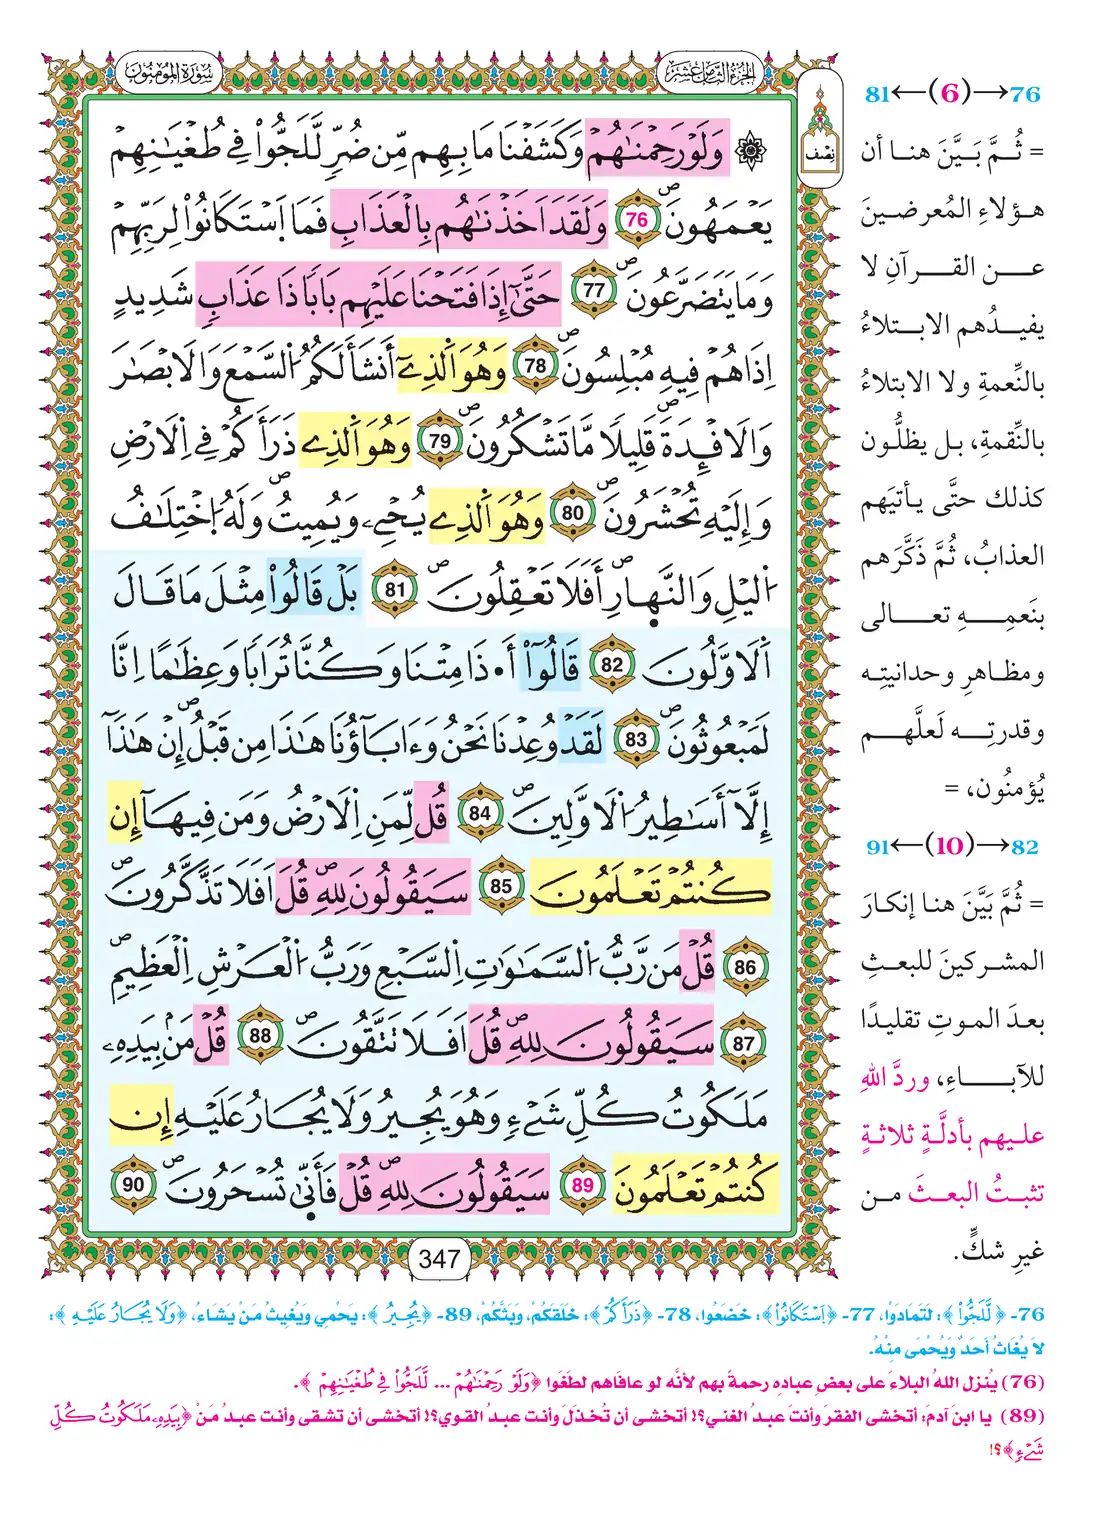 سُورَةُ المُؤْمِنُونَ
الجُزْءُ الثَّامِنَ عَشَرَ
نِصْف
وَلَوْ رَحِمْنَٰهُمْ وَكَشَفْنَا مَا بِهِم مِّن ضُرّٖ لَّلَجُّواْ فِے طُغْيَٰنِهِمْ
يَعْمَهُونَۖ 76 وَلَقَدَ اَخَذْنَٰهُم بِالْعَذَابِ فَمَا اَسْتَكَانُواْ لِرَبِّهِمْ
وَمَا يَتَضَرَّعُونَۖ 77 حَتَّىٰٓ إِذَا فَتَحْنَا عَلَيْهِم بَاباٗ ذَا عَذَابٖ شَدِيدٍ
اِذَا هُمْ فِيهِ مُبْلِسُونَۖ 78 وَهُوَ اَلذِےٓ أَنشَأَ لَكُمُ اُلسَّمْعَ وَالَابْصَٰرَ
وَالَافْـِٕدَةَۖ قَلِيلاٗ مَّا تَشْكُرُونَۖ 79 وَهُوَ اَلذِے ذَرَأَكُمْ فِے اِلَارْضِ
وَإِلَيْهِ تُحْشَرُونَۖ 80 وَهُوَ اَلذِے يُحْيِۦ وَيُمِيتُۖ وَلَهُ اُخْتِلَٰفُ
اُليْلِ وَالنَّهارِۖ أَفَلَا تَعْقِلُونَۖ 81 بَلْ قَالُواْ مِثْلَ مَا قَالَ
اَلَاوَّلُونَ 82 قَالُوٓاْ أَ۟ذَا مِتْنَا وَكُنَّا تُرَاباٗ وَعِظَٰماً اِنَّا
لَمَبْعُوثُونَۖ 83 لَقَدْ وُعِدْنَا نَحْنُ وَءَابَآؤُنَا هَٰذَا مِن قَبْلُۖ إِنْ هَٰذَآ
إِلَّآ أَسَٰطِيرُ اُلَاوَّلِينَۖ 84 قُل لِّمَنِ اِلَارْضُ وَمَن فِيهَآ إِن
كُنتُمْ تَعْلَمُونَ 85 سَيَقُولُونَ لِلهِۖ قُلَ اَفَلَا تَذَّكَّرُونَۖ
86 قُلْ مَن رَّبُّ اُلسَّمَٰوَٰتِ اِلسَّبْعِ وَرَبُّ اُلْعَرْشِ اِلْعَظِيمِۖ
87 سَيَقُولُونَ لِلهِۖ قُلَ اَفَلَا تَتَّقُونَۖ 88 قُلْ مَنۢ بِيَدِهِۦ
مَلَكُوتُ كُلِّ شَےْءٖ وَهُوَ يُجِيرُ وَلَا يُجَارُ عَلَيْهِ إِن
كُنتُمْ تَعْلَمُونَ 89 سَيَقُولُونَ لِلهِۖ قُلْ فَأَنّۭيٰ تُسْحَرُونَۖ 90
347
76→(6)←81
= ثُمَّ بَيَّنَ هنا أن
هؤلاءِ المُعرضينَ
عن القرآنِ لا
يفيدُهم الابتلاءُ
بالنِّعمةِ ولا الابتلاءُ
بالنِّقمةِ، بل يظلُّون
كذلك حتَّى يأتيَهم
العذابُ، ثُمَّ ذَكَّرَهم
بنَعمِهِ تعالى
ومظاهرِ وحدانيتِه
وقدرتِه لَعلَّهم
يُؤمنُون، =
82→(10)←91
= ثُمَّ بَيَّنَ هنا إنكارَ
المشركينَ للبعثِ
بعدَ الموتِ تقليدًا
للآباءِ، وردَّ اللهِ
عليهم بأدلَّةٍ ثلاثةٍ
تثبتُ البعثَ من
غيرِ شكٍّ.
76- ﴿لَّلَجُّواْ﴾: لَتَمادَوْا، 77- ﴿اِسْتَكَانُواْ﴾: خَضَعُوا، 78- ﴿ذَرَأَكُمْ﴾: خَلَقَكُمْ، وَبَثَّكُمْ، 89- ﴿يُجِيرُ﴾: يَحْمِي وَيُغِيثُ مَنْ يَشَاءُ، ﴿وَلَا يُجَارُ عَلَيْهِ﴾:
لاَ يُغَاثُ أَحَدٌ وَيُحْمَى مِنْهُ.
(76) يُنزل اللهُ البلاءَ على بعضِ عبادِه رحمةً بهم لأنَّه لو عافَاهم لطَغَوا ﴿وَلَوْ رَحِمْنَٰهُمْ ... لَّلَجُّواْ فِے طُغْيَٰنِهِمْ﴾.
(89) يا ابنَ آدمَ: أتخشى الفقرَ وأنتَ عبدُ الغني؟! أتخشى أن تُخذلَ وأنت عبدُ القوي؟! أتخشى أن تشقى وأنت عبدُ مَنْ ﴿بِيَدِهِۦ مَلَكُوتُ كُلِّ
شَےْءٖ﴾؟!